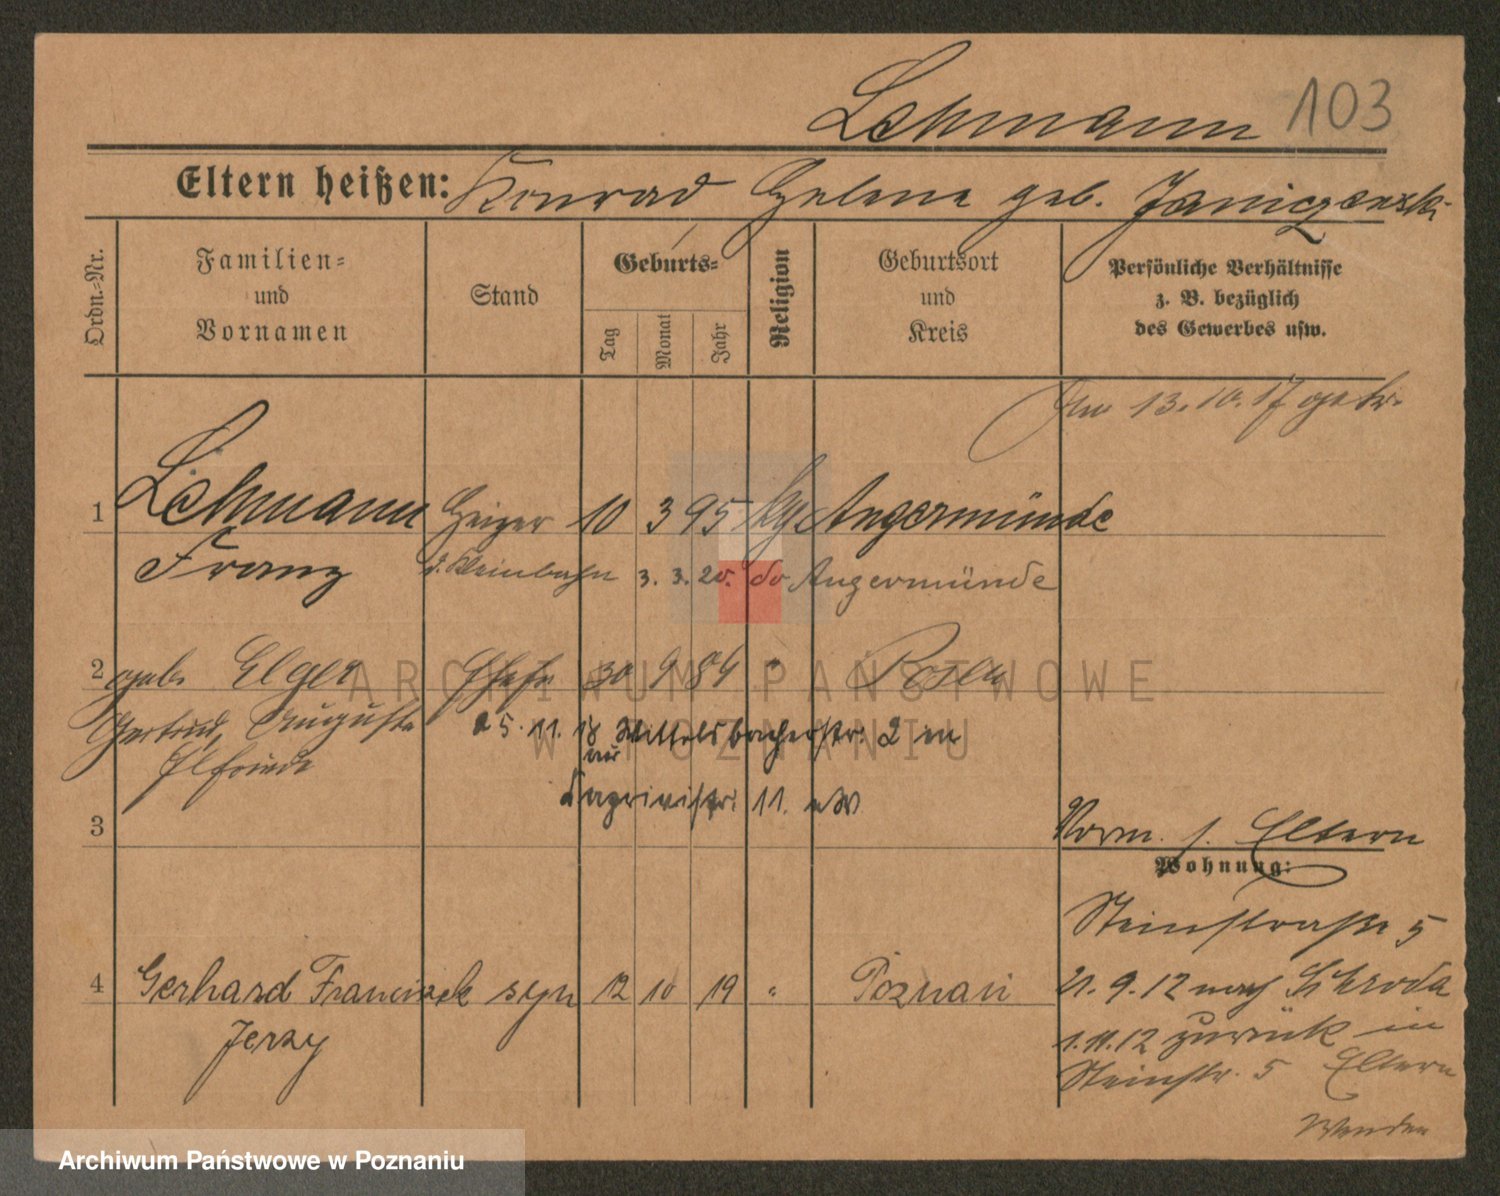 Lehmann 103
Eltern heißen: Konrad Helene geb. Janiczewski
Ordn.-Nr.
Familien-
und
Vornamen
Stand
Geburts-
Tag
Monat
Jahr
Religion
Geburtsort
und
Kreis
Persönliche Verhältnisse
z. B. bezüglich
des Gewerbes usw.
Am 13.10.17 getr.
1 Lehmann Heizer 10 3 95 kg Angermünde
Franz d. Kleinbahn 3. 3. 20. do Angermünde
2 geb. Elger Ehefr 30 9 84 " Posen
Gertrud, Augusta 25.11.18 Wittelsbacherstr. 2
Elfriede
11.
3
Vorm. s. Eltern
Wohnung:
Steinstrasse 5
4 Gerhard Franciszek syn 12 10 19 " Poznań
Jerzy
21.9.12 nach Schroda
1.11.12 zurück in
Steinstr. 5 Eltern
Wenden
ARCHIWUM PAŃSTWOWE
W POZNANIU
Archiwum Państwowe w Poznaniu